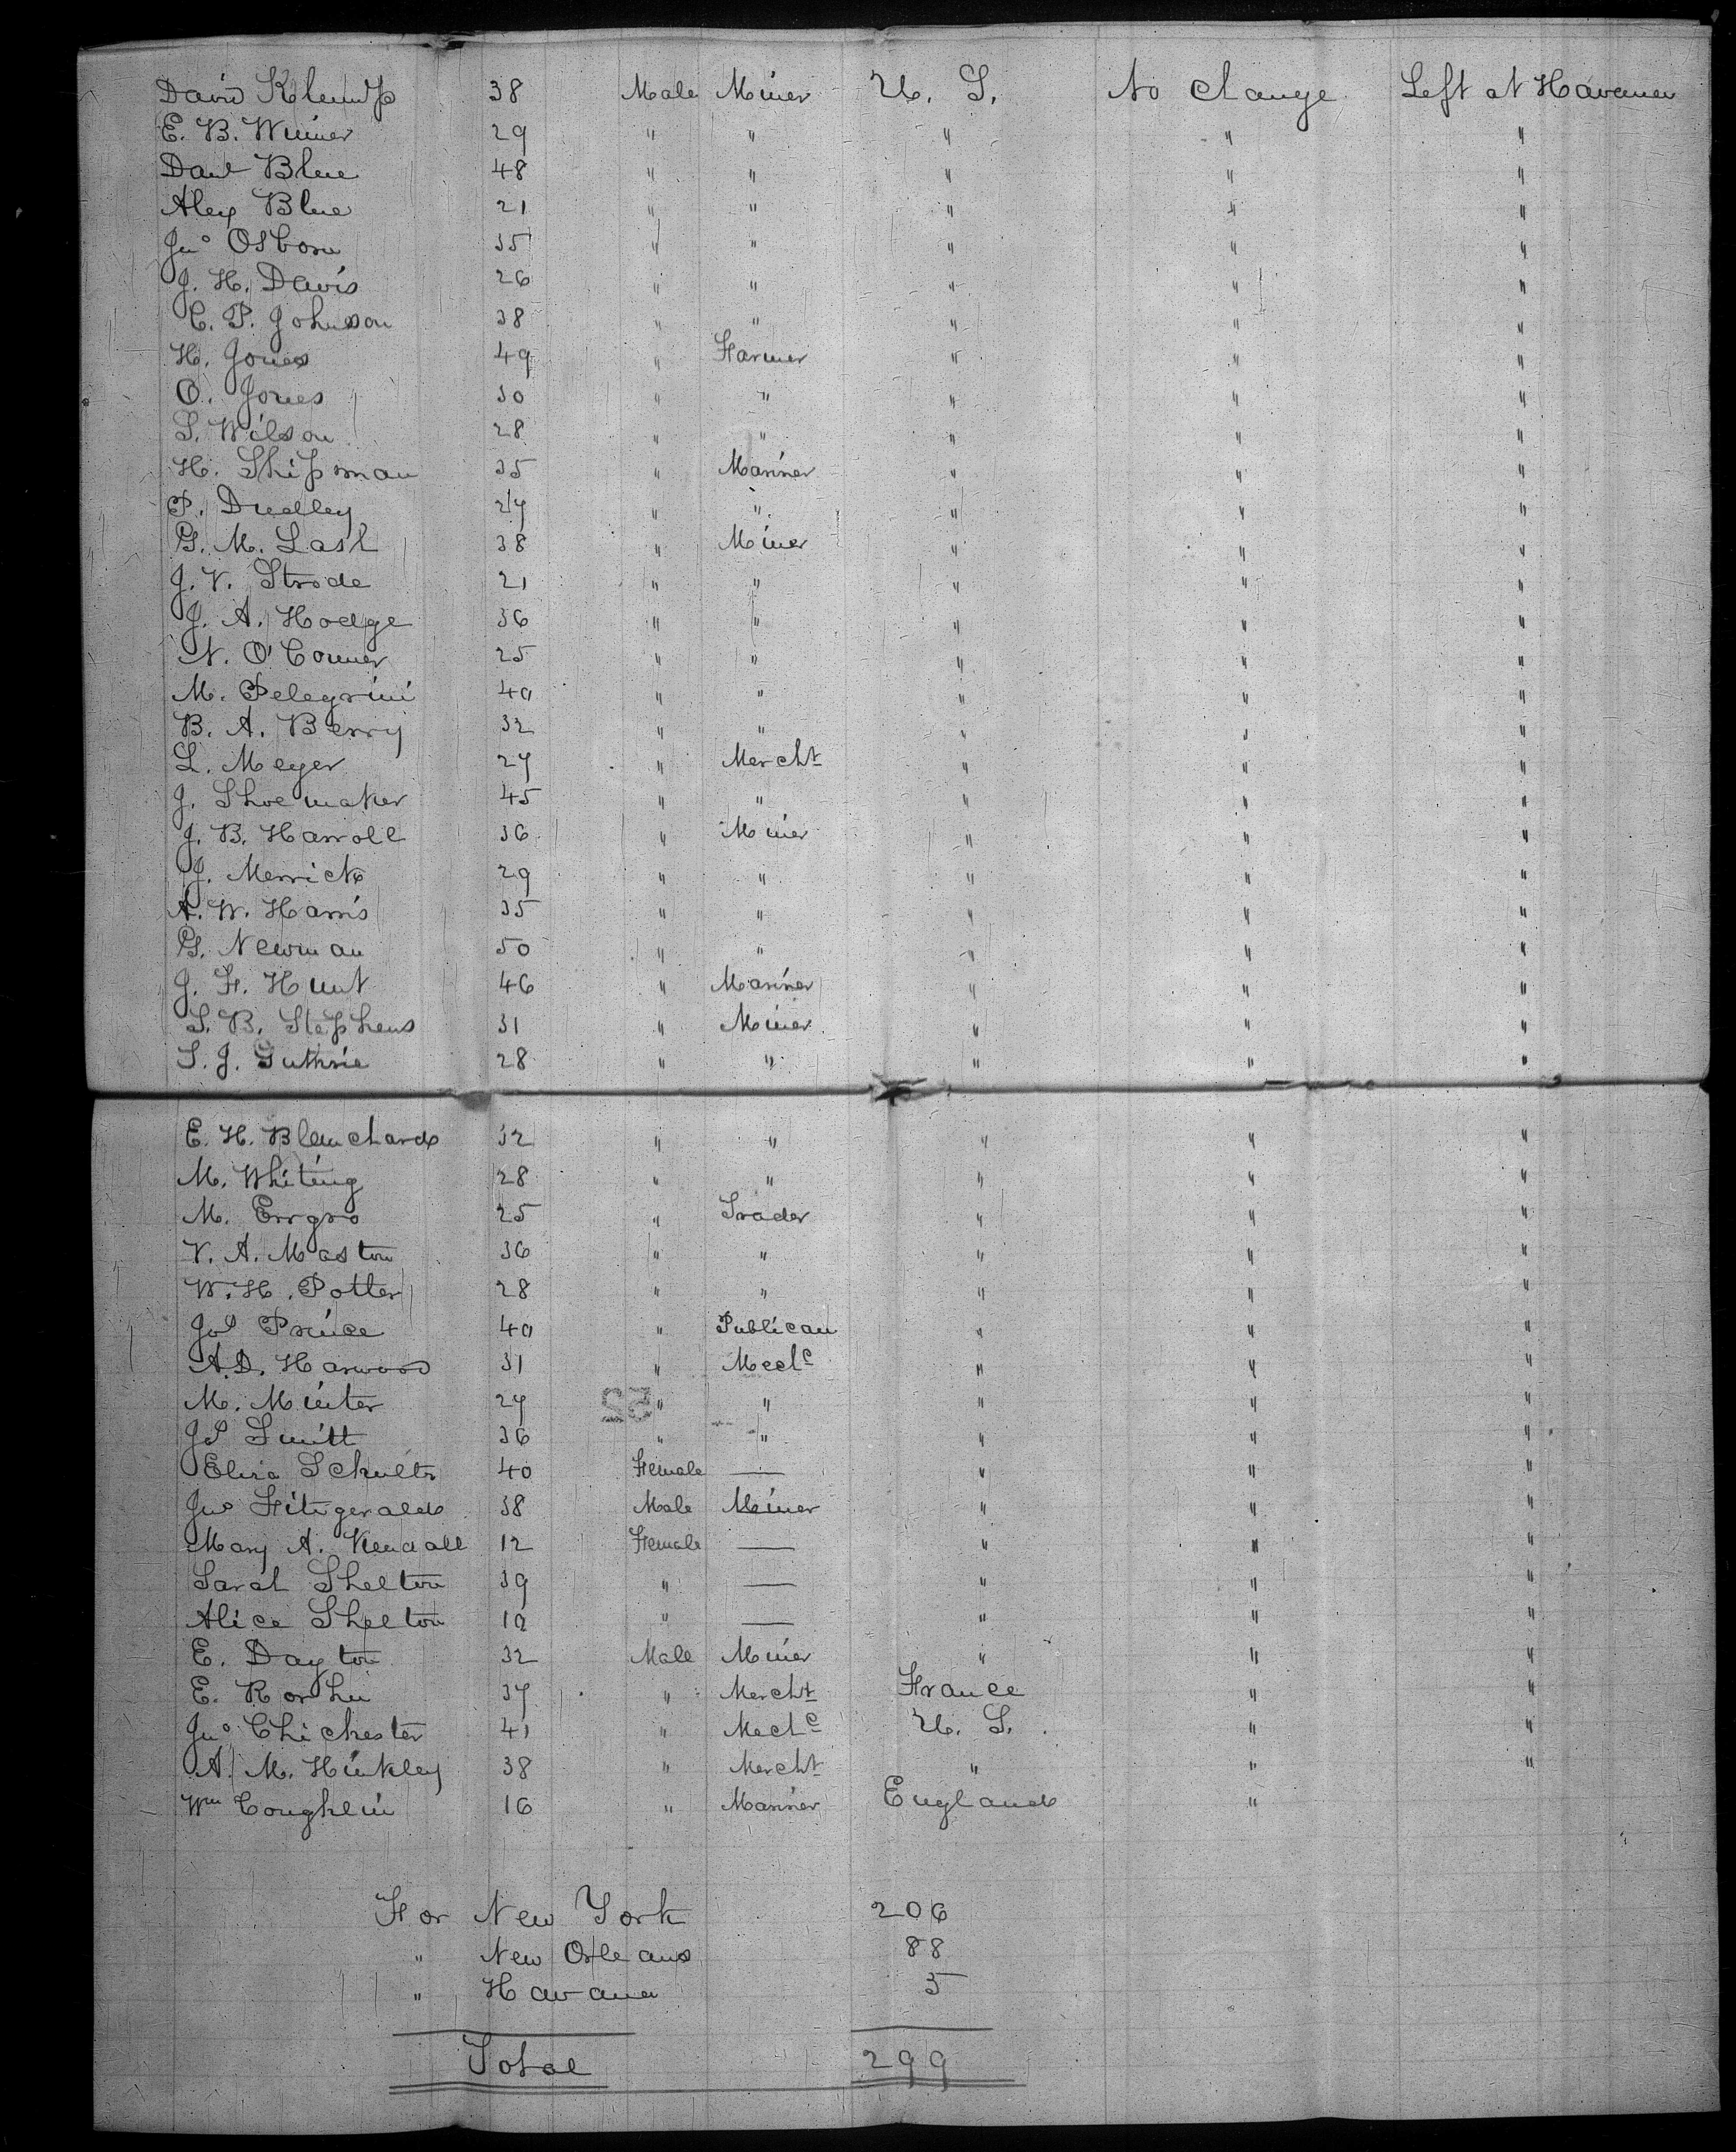 David Klemp 38 Male Miner U. S. No change Left at Havana
E. B. Winner 29 " " " " "
Danl Blue 48 " " " " "
Alex Blue 21 " " " " "
Jno Osborn 35 " " " " "
J. H. Davis 26 " " " " "
C. P. Johnson 38 " " " " "
H. Jones 49 " Farmer " " "
O. Jones 30 " " " " "
S. Wilson 28 " " " " "
H. Shipman 35 " Mariner " " "
P. Dudley 27 " " " " "
G. M. Lash 38 " Miner " " "
J. V. Strode 21 " " " " "
J. A. Hodge 36 " " " " "
N. O'Conner 25 " " " " "
M. Pelegrini 40 " " " " "
B. A. Berry 32 " " " " "
L. Meyer 27 " Mercht " " "
J. Shoemaker 45 " " " " "
J. B. Harroll 36 " Miner " " "
J. Merrick 29 " " " " "
A. W. Harris 35 " " " " "
G. Newman 50 " " " " "
J. F. Hunt 46 " Mariner " " "
S. B. Stephens 31 " Miner " " "
S. J. Guthrie 28 " " " " "
E. H. Blanchard 32 " " " " "
M. Whiting 28 " " " " "
M. Errgro 25 " Trader " " "
V. A. Maston 36 " " " " "
W. H. Potter 28 " " " " "
Jos Prince 40 " Publican " " "
A. D. Harwood 31 " Mechc " " "
M. Minter 27 " " " " "
Js Smitt 36 " " " " "
Eliza Schults 40 Female — " " "
Jno Fitzgerald 38 Male Miner " " "
Mary A. Kendall 12 Female — " " "
Sarah Shelton 39 " — " " "
Alice Shelton 10 " — " " "
E. Dayton 32 Male Miner " " "
E. 37 " Mercht France " "
Jno Chichester 41 " Mechc U. S. " "
A. M. Hinkley 38 " Mercht " " "
Wm Coughlin 16 " Mariner England "
For New York 206
" New Orleans 88
" Havana 5
Total 299